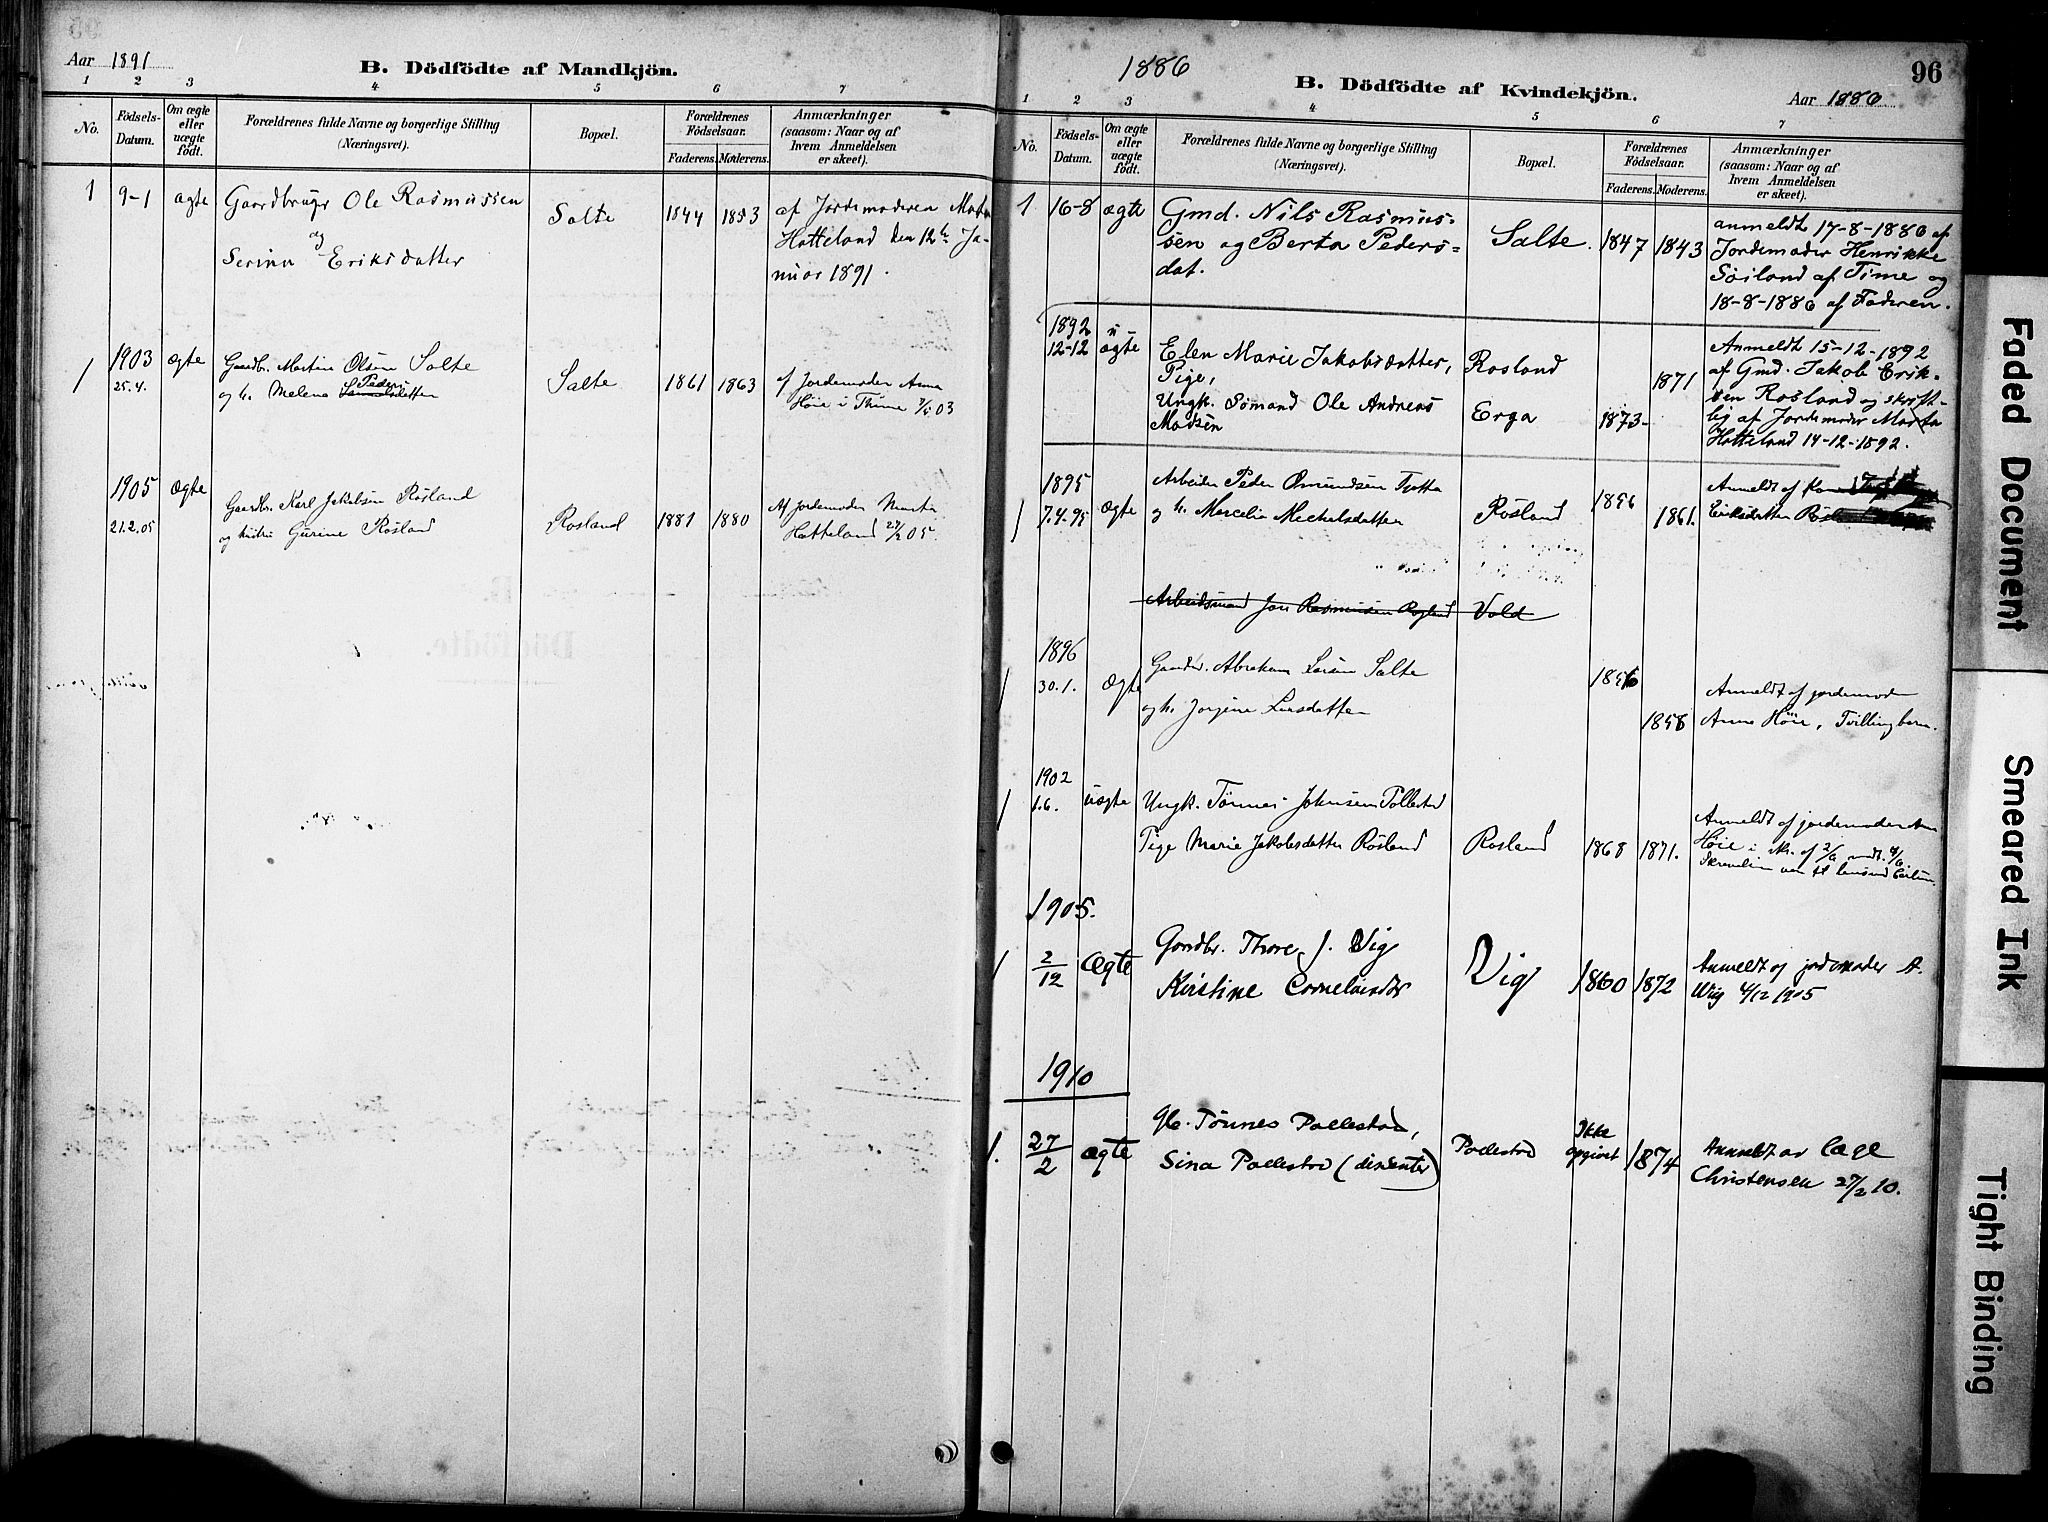 Aar 1891
B. Dödfödte af Mandkjön.
1 2 3 4 5 6 7
No.
Födsels-Datum.
Om ægte eller uægte födt.
Forældrenes fulde Navne og borgerlige Stilling
(Næringsvei).
Bopæl.
Forældrenes Födselsaar.
Faderens. Moderens.
Anmærkninger
(saasom: Naar og af
hvem Anmeldelsen
er skeet).
1 9-1 ægte Gaardbruger Ole Rasmussen
og
Serina Eriksdatter
Salte 1844 1853
af Jordemoderen Marta
Hatteland den 12te Ja-
nuar 1891.
1 1903
25.4. Ægte
Gaardbr. Martin Olsen Salte
og h. Melena Peders
datter
Salte 1861 1863
af Jordemoder Anna
Höie i Thime 7/5 03
1905
21.2.05 Ægte
Gaardbr. Karl Jakobsen Rosland
og hustru Gurine Rosland
Rosland 1881 1880
Af jordemoder Marta
Hatteland 27/2 05.
1886
96
B. Dödfödte af Kvindekjön.
Aar 1886
1 2 3 4 5 6 7
No.
Födsels-Datum.
Om ægte eller uægte födt.
Forældrenes fulde Navne og borgerlige Stilling
(Næringsvei).
Bopæl.
Forældrenes Födselsaar.
Faderens. Moderens.
Anmærkninger
(saasom: Naar og af
hvem Anmeldelsen
er skeet).
1 16-8 ægte Gmd. Nils Rasmus-
sen og Berta Peders-
dat.
Salte. 1847 1843
anmeldt 17-8-1886 af
Jordemoder Henrikke
Söiland af Time og
18-8-1886 af Faderen.
1892
12-12 uægte
Elen Marie Jakobsdatter,
Pige,
Ungk. Sömand Ole Andreas
Madsen
Rosland
Erga
1873- 1871
Anmeldt 15-12-1892
af Gmd. Jakob Erik-
sen Rosland og skrift-
lig af Jordemoder Marta
Hatteland 14-12-1892.
1 1895
7.4.95 Ægte
Arbeider Peder Osmundsen Tjotta
og h. Marcelie Mickelsdatter
Rosland 1856 1861.
Anmeldt af
Eriksdatter
Arbeidsmand Jon Rasmussen Rosland Vold
1 1896
30.1. Ægte
Gaardbr. Abraham Larsen Salte
og h. Jorgine Larsdatter
1856
1858
Anmeldt af jordemoder
Anna Höie, Tvillingbarn.
1 1902
1.6. uægte
Ungk. Tönnes Johnsen Tollestad
Pige Marie Jakobsdatter Rosland
Rosland 1868 1871.
Anmeldt af jordemoder Anna
Höie i
1905.
1 2/12 Ægte
Gaardbr. Thore J. Vig
Kirstine Corneliusdtr
Vig 1860 1872
Anmeldt af jordemoder A.
Wiig 4/12 1905
1910
1. 27/2 ægte
gb. Tönnes Pollestad,
Sina Pollestad (dissenter)
Pollestad
Ikke
opgivet 1874
Anmeldt av læge
Christensen 27/2 10.
Faded Document
Smeared Ink
Tight Binding